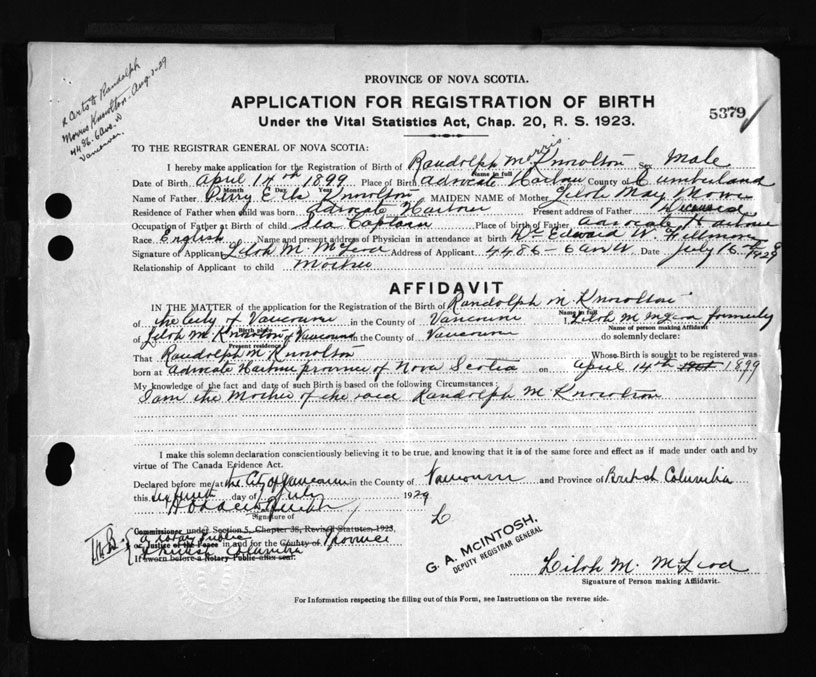 2 Certs Randolph
Morris Knowlton. Aug. 1-29
4486-6 Ave. W
Vancouver.
PROVINCE OF NOVA SCOTIA.
APPLICATION FOR REGISTRATION OF BIRTH
5379
Under the Vital Statistics Act, Chap. 20, R. S. 1923.
TO THE REGISTRAR GENERAL OF NOVA SCOTIA:
I hereby make application for the Registration of Birth of Randolph Morris Knowlton Sex Male
Name in full
Date of Birth April 14th 1899 Place of Birth Advocate Harbour County of Cumberland
Month Day Year
Name of Father Percy Knowlton MAIDEN NAME of Mother Liloh May
Residence of Father when child was born Advocate Harbour Present address of Father Deceased
Occupation of Father at Birth of child Sea Captain Place of birth of Father Advocate Harbour
Race English Name and present address of Physician in attendance at birth Dr Edward W.
Signature of Applicant Liloh M. McLeod Address of Applicant 4486-6 Av W. Date July 16th 1929
Relationship of Applicant to child Mother
AFFIDAVIT
IN THE MATTER of the application for the Registration of the Birth of Randolph M. Knowlton
Name in full
of the City of Vancouver in the County of Vancouver I, Liloh M McLeod formerly
Birth place
Name of person making Affidavit
of Liloh M Knowlton of Vancouver in the County of Vancouver do solemnly declare:
Present residence
That Randolph M Knowlton Whose Birth is sought to be registered was
born at Advocate Harbour province of Nova Scotia on April 14th 1899
My knowledge of the fact and date of such Birth is based on the following Circumstances:
I am the Mother of the said Randolph M Knowlton
I make this solemn declaration conscientiously believing it to be true, and knowing that it is of the same force and effect as if made under oath and by
virtue of The Canada Evidence Act.
Declared before me at the City of Vancouver in the County of Vancouver and Province of British Columbia
this day of July 1929
Signature of
Commissioner under Section 5, Chapter 38, Revised Statutes, 1923,
a notary public
or Justice of the Peace in and for the County of Province
British Columbia
If sworn before a Notary Public affix seal.
G. A. McINTOSH,
DEPUTY REGISTRAR GENERAL
Liloh M. McLeod
Signature of Person making Affidavit.
For Information respecting the filling out of this Form, see Instructions on the reverse side.